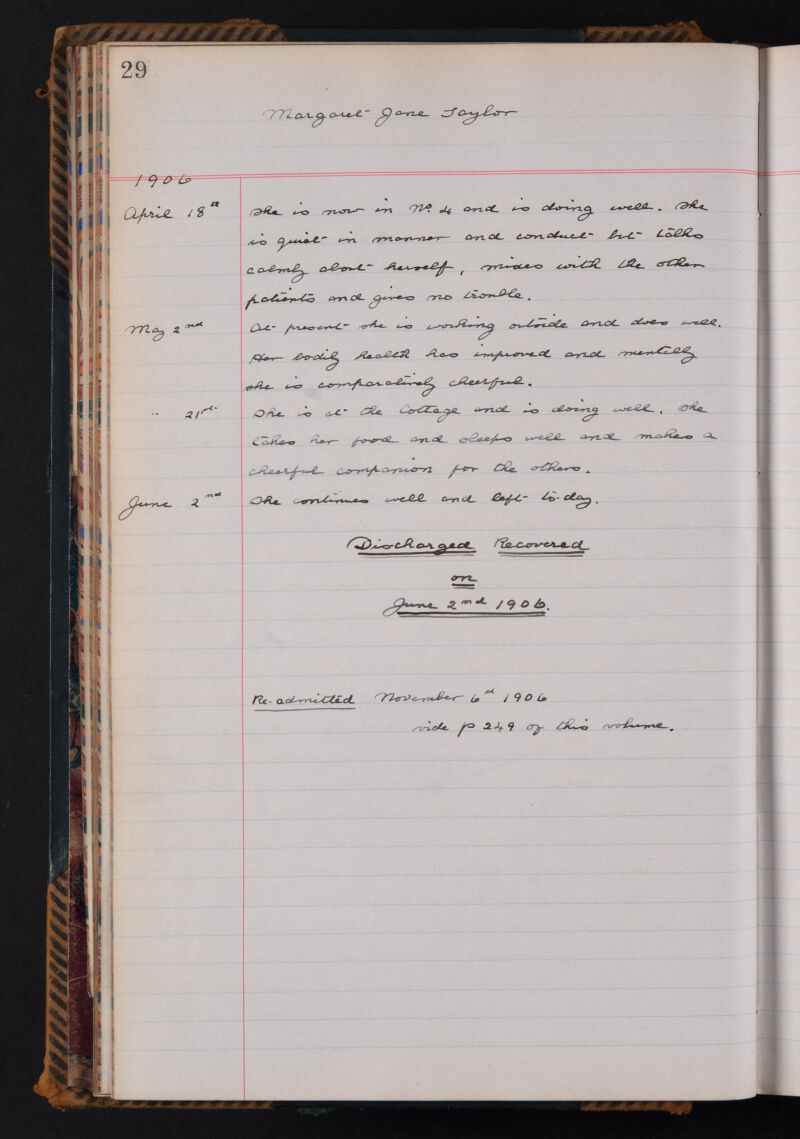 29
Margaret Jane Taylor
1906
April 18th She is now in No. 4 and is doing well. She
is quiet in manner and conduct but talks
calmly about herself, mixes with the other
patients and gives no trouble.
May 2nd At present she is working outside and does well.
Her bodily health has improved and mentally
she is comparatively cheerful.
" 21st She is at the Cottage and is doing well. She
takes her food and sleeps well and makes a
cheerful companion for the others.
June 2nd She continues well and left to-day.
Discharged Recovered
on
June 2nd 1906.
Re-admitted November 6th 1906
vide p 249 of this volume.